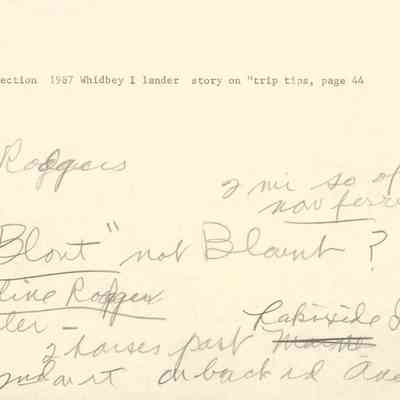 ection 1987 Whidbey I lander story on "trip tips, page 44
Rodgers
2 mi so of
nav ferr
Blont" not Blount ?
line Rodgers
ler -
2 houses past
on back rd